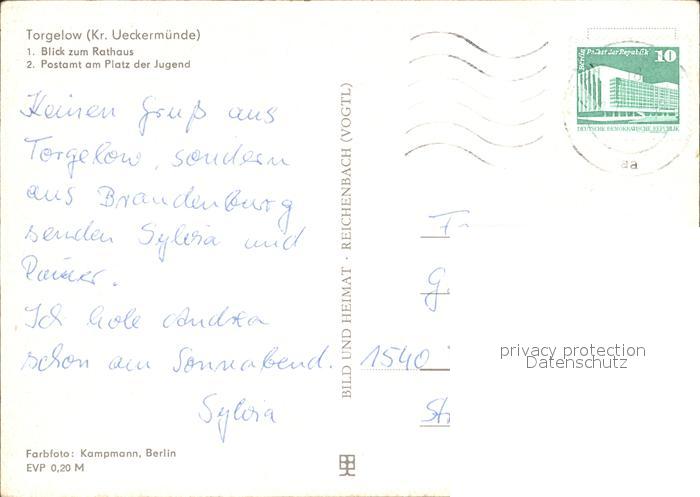 Torgelow (Kr. Ueckermünde)
1. Blick zum Rathaus
2. Postamt am Platz der Jugend
Berlin Palast der Republik 10
DEUTSCHE DEMOKRATISCHE REPUBLIK
aa
Keinen Gruß aus
Torgelow, sondern
aus Brandenburg
senden Sylvia und
Rainer.
Ich hole Andrea
schon am Sonnabend.
Sylvia
BILD UND HEIMAT · REICHENBACH (VOGTL)
G.
1540
St
privacy protection
Datenschutz
Farbfoto: Kampmann, Berlin
EVP 0,20 M